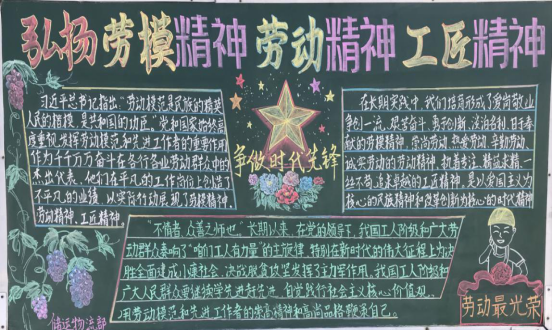 弘扬劳模精神 劳动精神 工匠精神
习近平总书记指出，劳动模范是民族的精英、
人民的楷模，是共和国的功臣。党和国家始终高
度重视发挥劳动模范和先进工作者的重要作用
作为千千万万奋斗在各行各业劳动群众中的
杰出代表，他们在平凡的工作岗位上创造了
不平凡的业绩，以实际行动展现了劳模精神、
劳动精神、工匠精神。
争做时代先锋
在长期实践中，我们培育形成了爱岗敬业、
争创一流、艰苦奋斗、勇于创新、淡泊名利、甘于奉
献的劳模精神，崇尚劳动、热爱劳动、辛勤劳动、
诚实劳动的劳动精神，执着专注、精益求精、一
丝不苟、追求卓越的工匠精神，是以爱国主义为
核心的民族精神和改革创新为核心的时代精神
“不惰者，众善之师也”长期以来，在党的领导下，我国工人阶级和广大劳
动群众奏响了“咱们工人有力量”的主旋律，特别在新时代的伟大征程上为决
胜全面建成小康社会、决战脱贫攻坚发挥了主力军作用，我国工人阶级和
广大人民群众要继续学先进赶先进，自觉践行社会主义核心价值观，
用劳动模范和先进工作者的崇高精神和高尚品格鞭策自己。
储运物流部
劳动最光荣